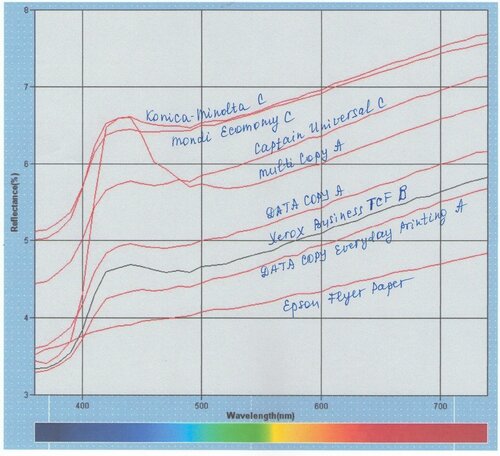 8
7
6
5
4
3
Reflectance(%)
Konica-Minolta C
Mondi Ecomomy C
Captain Universal C
Multi Copy A
DATA COPY A
Xerox Busyness TCF B
DATA COPY Everyday Printing A
Epson Flyer Paper
400 500 600 700
Wavelength(nm)